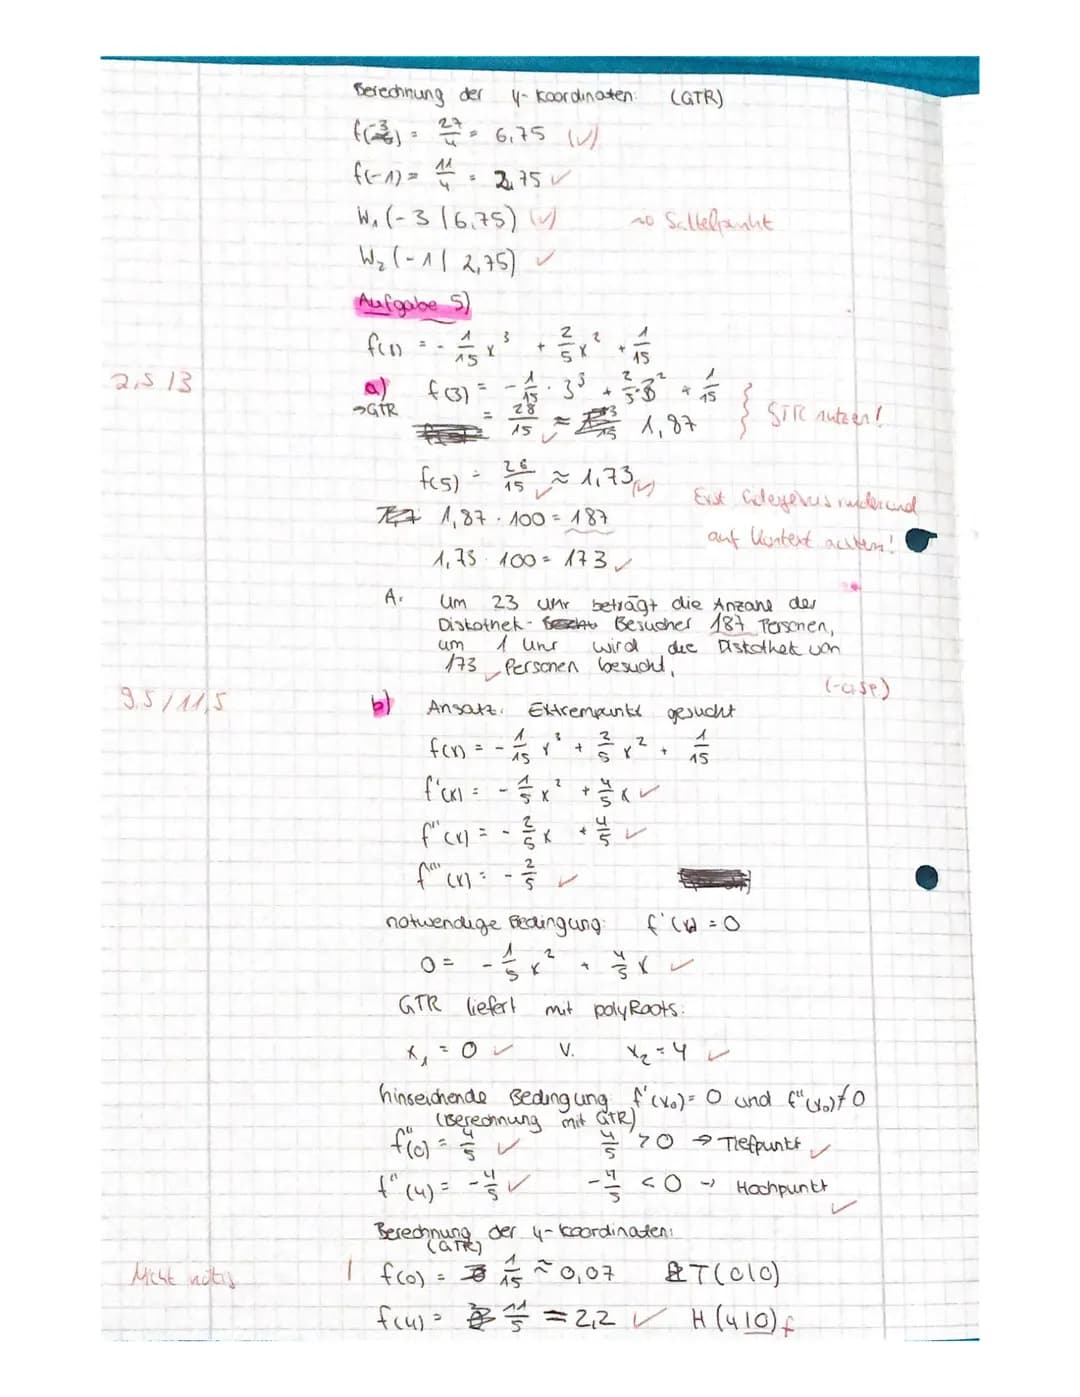 Berechnung der y-Koordinaten: (GTR)
f(-3) = 27/4 = 6,75 (✓)
f(-1) = 11/4 = 2,75 ✓
W₁ (-3 | 6,75) (✓) → Sattelpunkt
W₂ (-1 | 2,75) ✓
Aufgabe 5)
f(x) = - 1/15 x³ + 2/5 x² + 1/15
2,5 / 3
a) f(3) = - 1/15 · 3³ + 2/5 · 3² + 1/15
→GTR = 28/15 ✓ ≈ 1,87 } GTR nutzen!
f(5) = 26/15 ✓ ≈ 1,73 (✓)
1,87 · 100 = 187
Erst runden und
auf Kontext achten!
1,73 · 100 = 173 ✓
A: Um 23 Uhr beträgt die Anzahl der
Diskothek- Besucher 187 Personen,
um 1 Uhr wird die Diskothek von
173 Personen besucht.
9,5 / 11,5
b) Ansatz: Extrempunkt gesucht
f(x) = - 1/15 x³ + 2/5 x² + 1/15
f'(x) = - 1/5 x² + 4/5 x ✓
f''(x) = - 2/5 x + 4/5 ✓
f'''(x) = - 2/5 ✓
notwendige Bedingung: f'(x) = 0
0 = - 1/5 x² + 4/5 x ✓
GTR liefert mit polyRoots:
x₁ = 0 ✓ v. x₂ = 4 ✓
hinreichende Bedingung f'(x₀) = 0 und f''(x₀) ≠ 0
(Berechnung mit GTR)
f''(0) = 4/5 ✓ 4/5 > 0 → Tiefpunkt ✓
f''(4) = - 4/5 ✓ - 4/5 < 0 → Hochpunkt ✓
Berechnung der y-Koordinaten:
(GTR)
Nicht nötig | f(0) = 1/15 ≈ 0,07 T (0|0)
f(4) = 11/5 = 2,2 ✓ H (4|0) f